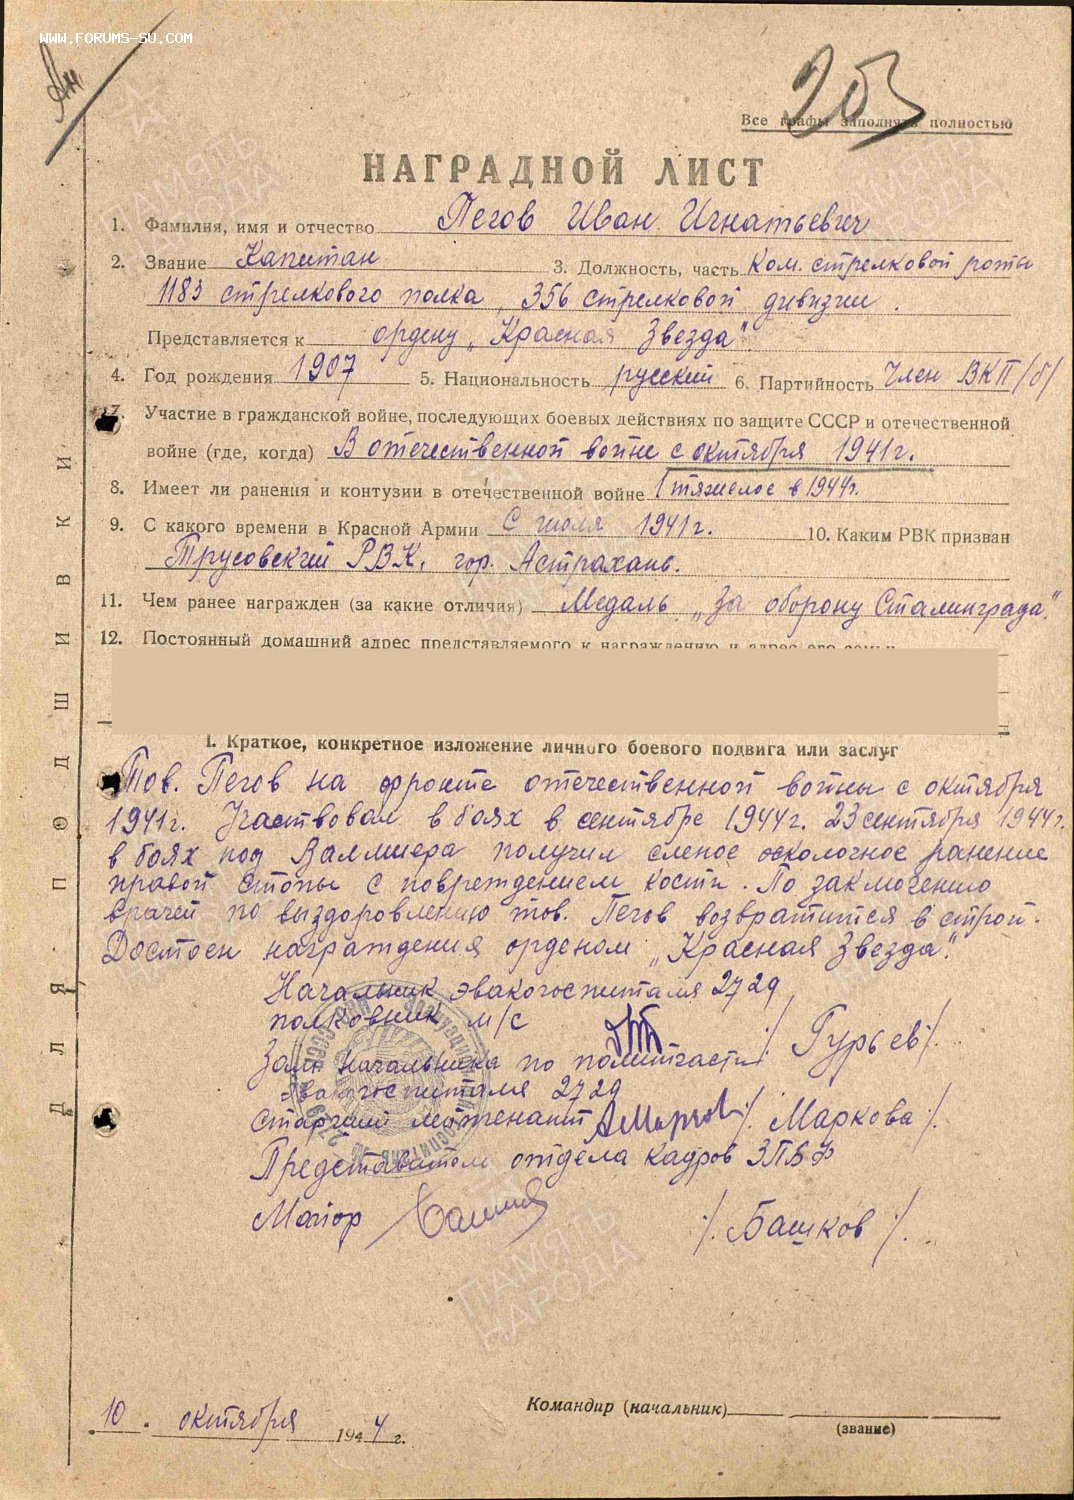 WWW.FORUMS-SU.COM
203
Все графы заполнять полностью
НАГРАДНОЙ ЛИСТ
1. Фамилия, имя и отчество Пегов Иван Игнатьевич
2. Звание Капитан 3. Должность, часть Ком. стрелковой роты
1183 стрелкового полка, 356 стрелковой дивизии.
Представляется к ордену „Красная Звезда".
4. Год рождения 1907 5. Национальность русский 6. Партийность Член ВКП/б/
7. Участие в гражданской войне, последующих боевых действиях по защите СССР и отечественной
войне (где, когда) В отечественной войне с октября 1941г.
8. Имеет ли ранения и контузии в отечественной войне 1 тяжелое в 1944г.
9. С какого времени в Красной Армии С июля 1941г. 10. Каким РВК призван
Трусовский РВК, гор. Астрахань.
11. Чем ранее награжден (за какие отличия) Медаль „За оборону Сталинграда"
12. Постоянный домашний адрес представляемого к награждению и адрес его семьи
I. Краткое, конкретное изложение личного боевого подвига или заслуг
Тов. Пегов на фронте отечественной войны с октября
1941г. Участвовал в боях в сентябре 1944г. 23 сентября 1944г.
в боях под Валмиера получил слепое осколочное ранение
правой стопы с повреждением кости. По заключению
врачей по выздоровлению тов. Пегов возвратится в строй.
Достоен награждения орденом „Красная Звезда".
Начальник эвакогоспиталя 2729
полковник м/с /Гурьев/.
Зам. начальника по политчасти
эвакогоспиталя 2729
старший лейтенант /Маркова/.
Представитель отдела кадров 3ПБФ
Майор /Башков/.
10. октября 1944г.
Командир (начальник)
(звание)
ДЛЯ ПОДШИВКИ
ПАМЯТЬ
НАРОДА